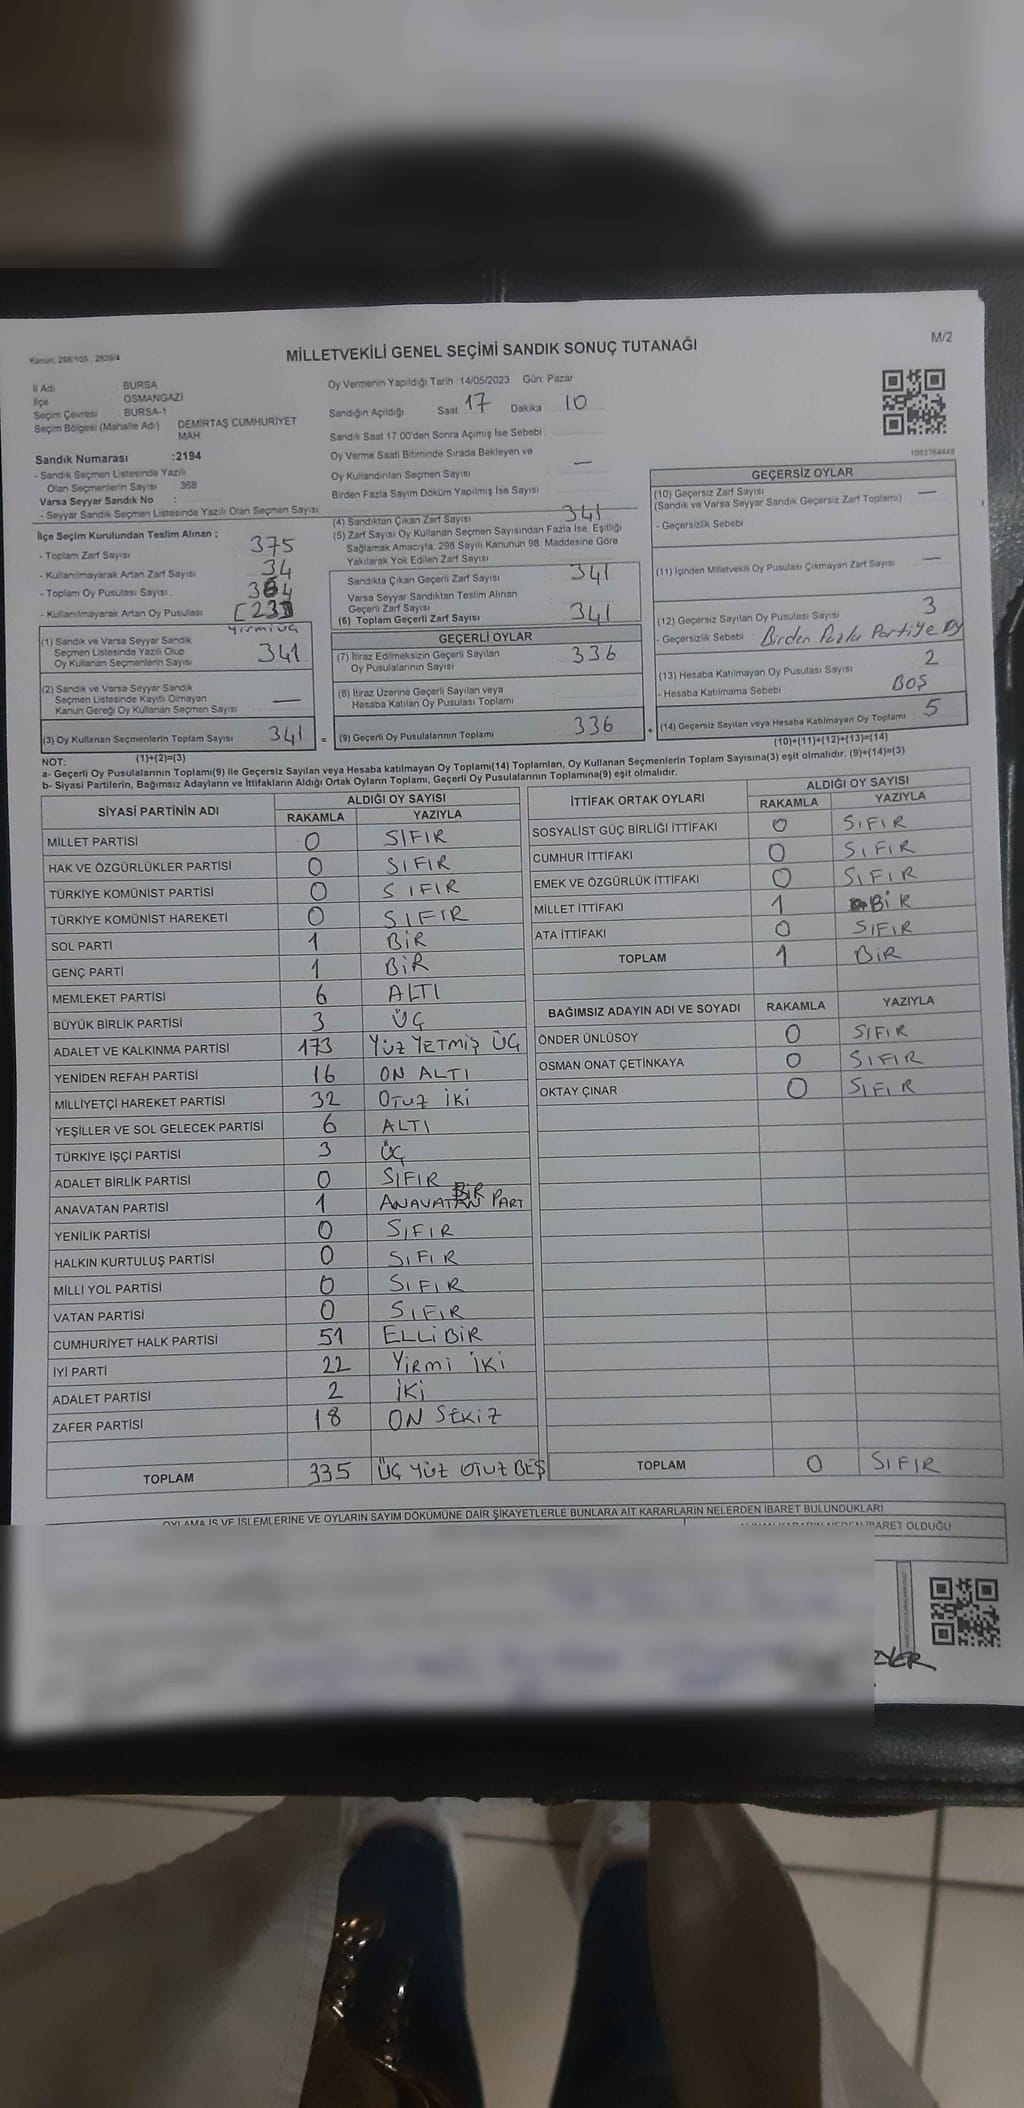 Kanun: 298/105 , 2839/4
MİLLETVEKİLİ GENEL SEÇİMİ SANDIK SONUÇ TUTANAĞI
M/2
İl Adı : BURSA
İlçe : OSMANGAZİ
Seçim Çevresi : BURSA-1
Seçim Bölgesi (Mahalle Adı) : DEMİRTAŞ CUMHURİYET MAH.
Sandık Numarası :2194
- Sandık Seçmen Listesinde Yazılı
Olan Seçmenlerin Sayısı : 368
Varsa Seyyar Sandık No :
- Seyyar Sandık Seçmen Listesinde Yazılı Olan Seçmen Sayısı:
Oy Vermenin Yapıldığı Tarih :14/05/2023 Gün: Pazar
Sandığın Açıldığı Saat: 17 Dakika : 10
Sandık Saat 17:00'den Sonra Açılmış İse Sebebi :
Oy Verme Saati Bitiminde Sırada Bekleyen ve
Oy Kullandırılan Seçmen Sayısı —
Birden Fazla Sayım Döküm Yapılmış İse Sayısı
1083764448
İlçe Seçim Kurulundan Teslim Alınan ;
- Toplam Zarf Sayısı 375
- Kullanılmayarak Artan Zarf Sayısı 34
- Toplam Oy Pusulası Sayısı 364
- Kullanılmayarak Artan Oy Pusulası [23]
Yirmi üç
(1) Sandık ve Varsa Seyyar Sandık
Seçmen Listesinde Yazılı Olup
Oy Kullanan Seçmenlerin Sayısı 341
(2) Sandık ve Varsa Seyyar Sandık
Seçmen Listesinde Kayıtlı Olmayan
Kanun Gereği Oy Kullanan Seçmen Sayısı —
(3) Oy Kullanan Seçmenlerin Toplam Sayısı 341 =
(4) Sandıktan Çıkan Zarf Sayısı 341
(5) Zarf Sayısı Oy Kullanan Seçmen Sayısından Fazla İse, Eşitliği
Sağlamak Amacıyla, 298 Sayılı Kanunun 98. Maddesine Göre
Yakılarak Yok Edilen Zarf Sayısı
Sandıkta Çıkan Geçerli Zarf Sayısı 341
Varsa Seyyar Sandıktan Teslim Alınan
Geçerli Zarf Sayısı
(6) Toplam Geçerli Zarf Sayısı 341
GEÇERLİ OYLAR
(7) İtiraz Edilmeksizin Geçerli Sayılan
Oy Pusulalarının Sayısı 336
(8) İtiraz Üzerine Geçerli Sayılan veya
Hesaba Katılan Oy Pusulası Toplamı
(9) Geçerli Oy Pusulalarının Toplamı 336 +
GEÇERSİZ OYLAR
(10) Geçersiz Zarf Sayısı —
(Sandık ve Varsa Seyyar Sandık Geçersiz Zarf Toplamı)
- Geçersizlik Sebebi
(11) İçinden Milletvekili Oy Pusulası Çıkmayan Zarf Sayısı —
(12) Geçersiz Sayılan Oy Pusulası Sayısı 3
- Geçersizlik Sebebi : Birden Fazla Partiye Oy
(13) Hesaba Katılmayan Oy Pusulası Sayısı 2
- Hesaba Katılmama Sebebi BOŞ
(14) Geçersiz Sayılan veya Hesaba Katılmayan Oy Toplamı 5
NOT: (1)+(2)=(3)
(10)+(11)+(12)+(13)=(14)
a- Geçerli Oy Pusulalarının Toplamı(9) ile Geçersiz Sayılan veya Hesaba katılmayan Oy Toplamı(14) Toplamları, Oy Kullanan Seçmenlerin Toplam Sayısına(3) eşit olmalıdır. (9)+(14)=(3)
b- Siyasi Partilerin, Bağımsız Adayların ve İttifakların Aldığı Ortak Oyların Toplamı, Geçerli Oy Pusulalarının Toplamına(9) eşit olmalıdır.
SİYASİ PARTİNİN ADI ALDIĞI OY SAYISI
RAKAMLA YAZIYLA
MİLLET PARTİSİ 0 SIFIR
HAK VE ÖZGÜRLÜKLER PARTİSİ 0 SIFIR
TÜRKİYE KOMÜNİST PARTİSİ 0 SIFIR
TÜRKİYE KOMÜNİST HAREKETİ 0 SIFIR
SOL PARTİ 1 BİR
GENÇ PARTİ 1 BİR
MEMLEKET PARTİSİ 6 ALTI
BÜYÜK BİRLİK PARTİSİ 3 ÜÇ
ADALET VE KALKINMA PARTİSİ 173 YÜZ YETMİŞ ÜÇ
YENİDEN REFAH PARTİSİ 16 ON ALTI
MİLLİYETÇİ HAREKET PARTİSİ 32 OTUZ İKİ
YEŞİLLER VE SOL GELECEK PARTİSİ 6 ALTI
TÜRKİYE İŞÇİ PARTİSİ 3 ÜÇ
ADALET BİRLİK PARTİSİ 0 SIFIR
ANAVATAN PARTİSİ 1 ANAVATAN PART BİR
YENİLİK PARTİSİ 0 SIFIR
HALKIN KURTULUŞ PARTİSİ 0 SIFIR
MİLLİ YOL PARTİSİ 0 SIFIR
VATAN PARTİSİ 0 SIFIR
CUMHURİYET HALK PARTİSİ 51 ELLİ BİR
İYİ PARTİ 22 YİRMİ İKİ
ADALET PARTİSİ 2 İKİ
ZAFER PARTİSİ 18 ON SEKİZ
TOPLAM 335 ÜÇ YÜZ OTUZ BEŞ
İTTİFAK ORTAK OYLARI ALDIĞI OY SAYISI
RAKAMLA YAZIYLA
SOSYALİST GÜÇ BİRLİĞİ İTTİFAKI 0 SIFIR
CUMHUR İTTİFAKI 0 SIFIR
EMEK VE ÖZGÜRLÜK İTTİFAKI 0 SIFIR
MİLLET İTTİFAKI 1 BİR
ATA İTTİFAKI 0 SIFIR
TOPLAM 1 BİR
BAĞIMSIZ ADAYIN ADI VE SOYADI RAKAMLA YAZIYLA
ÖNDER ÜNLÜSOY 0 SIFIR
OSMAN ONAT ÇETİNKAYA 0 SIFIR
OKTAY ÇINAR 0 SIFIR
TOPLAM 0 SIFIR
OYLAMA İŞ VE İŞLEMLERİNE VE OYLARIN SAYIM DÖKÜMÜNE DAİR ŞİKAYETLERLE BUNLARA AİT KARARLARIN NELERDEN İBARET BULUNDUKLARI
İBARET OLDUĞU